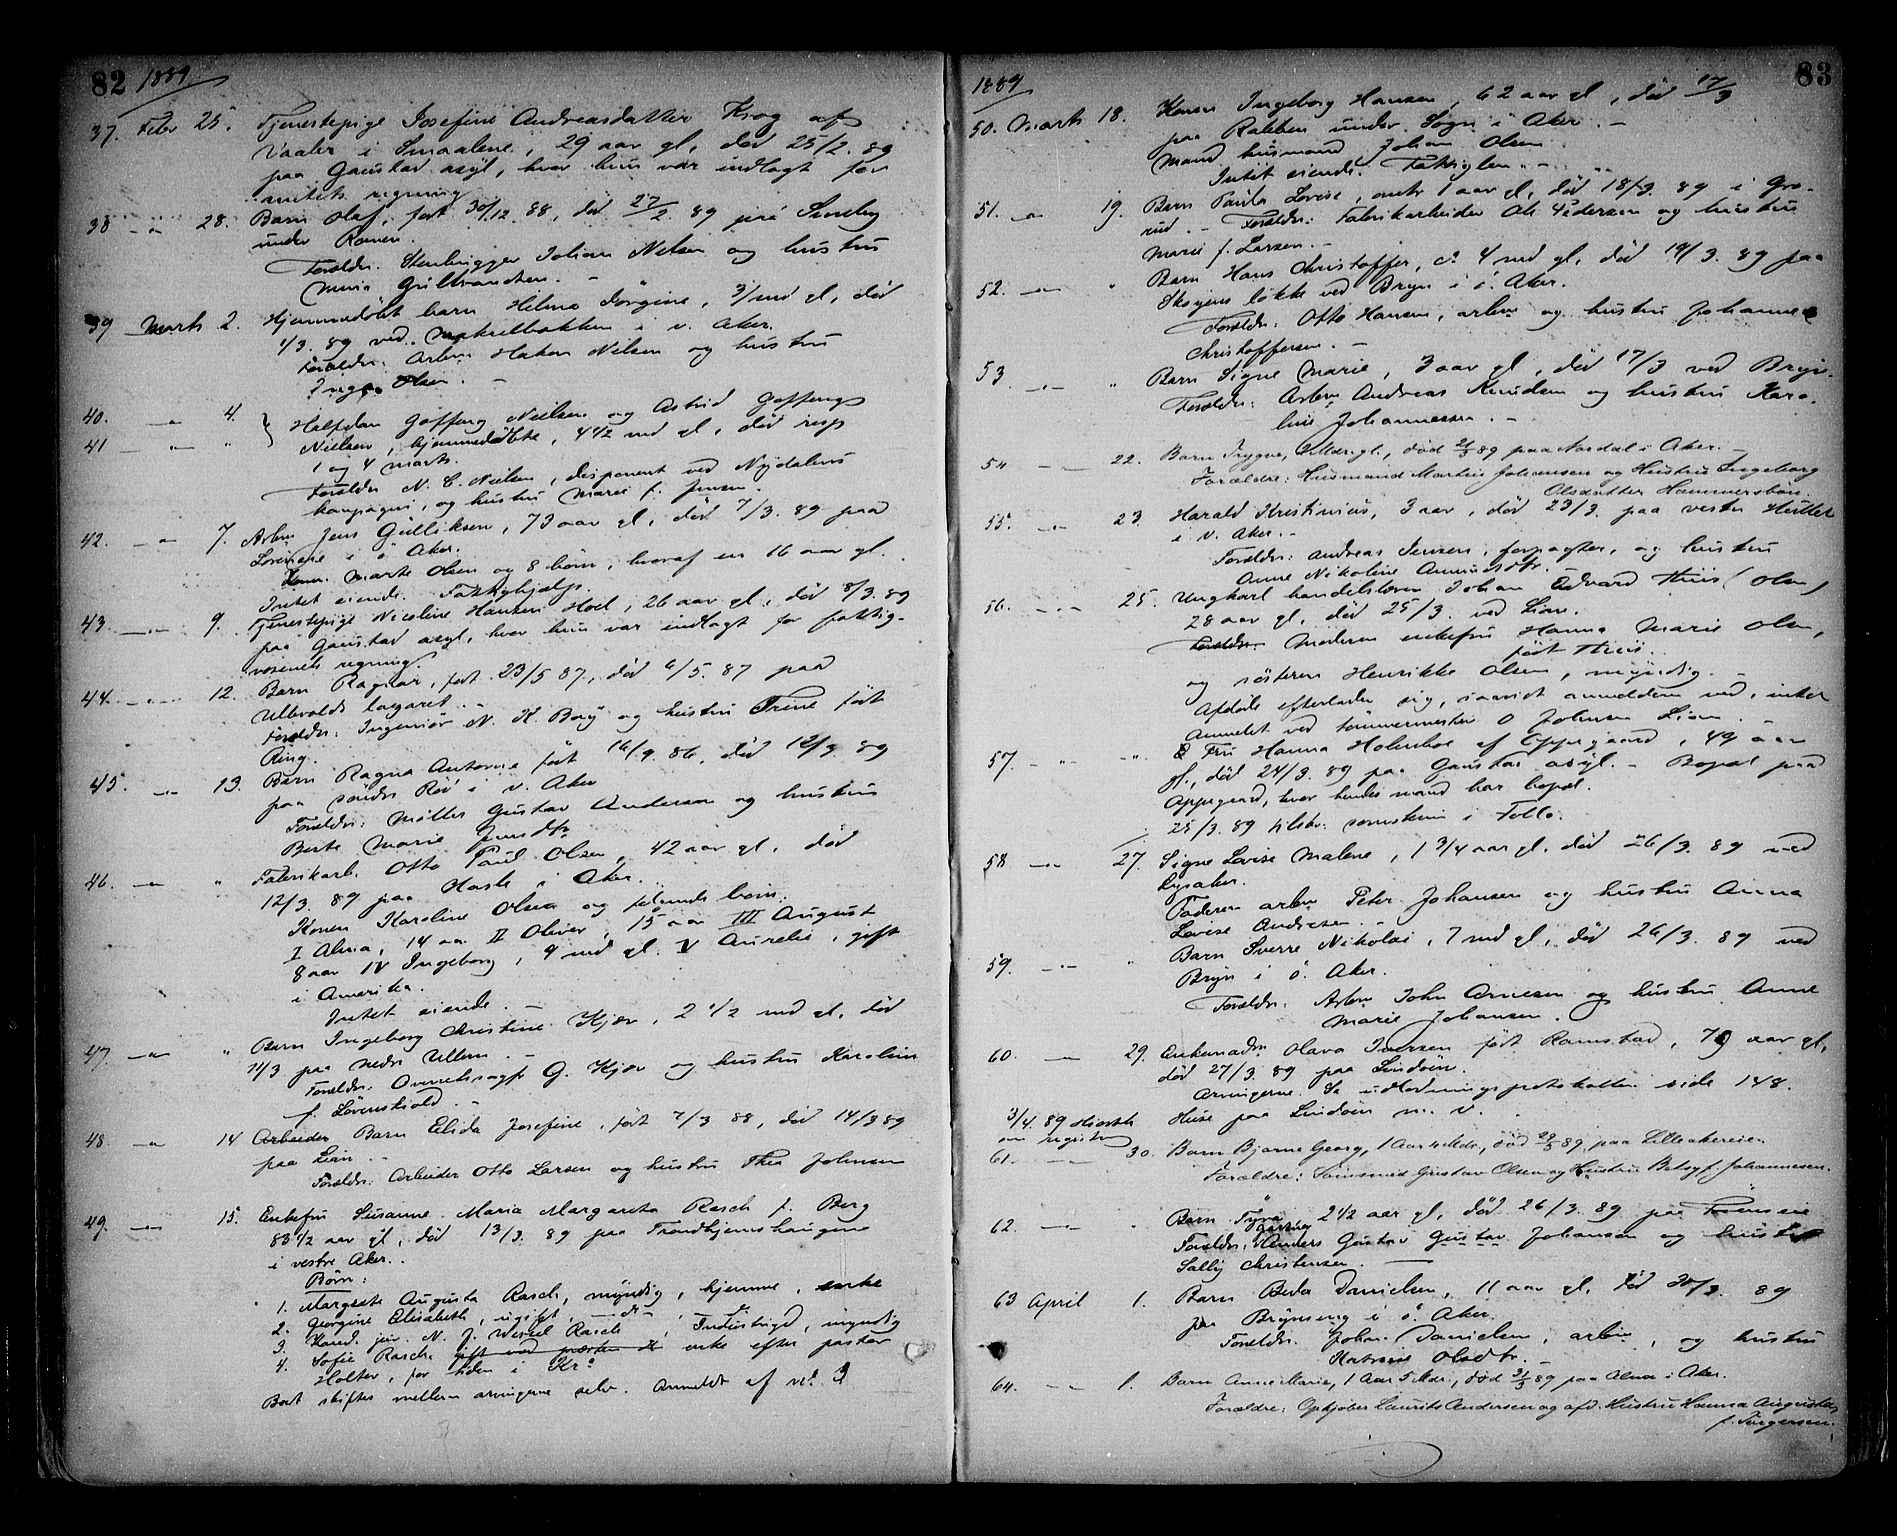 82 1889
37. Febr 25. Tjenestepige Josefine Andreasdatter Krog af
Vaaler i Smaalene, 29 aar gl, død 25/2. 89
paa Gaustad asyl, hvor hun var indlagt for
amtets regning
38 " " 28. Barn Olaf, født 30/12 88, død 27/2 89 paa
under
Forældr. Johan Nelsen og hustru
Gulbrandsen. -
39 Marts 2. Hjemmedøbt barn Helma Jørgine, 3/ md gl, død
1/3. 89 ved Makrelbakken i v. Aker.
Forældr: Arbm Hakon Nilsen og hustru
Inga Olsen. -
40. — 4. Halfdan Goffeng Nielsen og Astrid Goffeng
41 — " — " Nielsen, hjemmedøbte, 4 1/2 md gl, død resp
1 og 4 marts.
Forældr N. C. Nielsen, disponent ved Nydalens
kompagni, og hustru Marie f. Jensen.
42. — " 7. Arbm Jens Gulliksen, 73 aar gl, død 7/3. 89 paa
i ø Aker.
Konen Marte Olsen og 8 børn, hvoraf en 16 aar gl.
Intet eiende. Fattighjælp.
43. — " — 9. Tjenestepige Nicoline Hansen Hoel, 26 aar gl, død 8/3. 89
paa Gaustad asyl, hvor hun var indlagt for fattig-
vesenets regning.
44. — " — 12. Barn Ragnar, født 23/5 87, død 6/5. 87 paa
Ullevolds lazaret. -
Forældr: Ingeniør N. K. og hustru Trine født
Ring.
45. — " 13. Barn Ragna Antonie født 16/9. 86, død 12/3. 89
paa søndre Rød i v. Aker
Forældr: Møller Gustav Anderson og hustru
Berte Marie
46. — " " Fabrikarb. Otto Paul Olsen, 42 aar gl, død
12/3. 89 paa Hasle i Aker.
Konen Karoline Olsen og følgende børn:
I Alma, 14 aar II Oliver, 15 aar III August
8 aar IV Ingeborg, 9 md gl. V Aurelie, gift
i Amerika.
Intet eiende. -
47. — " " Barn Ingeborg Christine Kjær, 2 1/2 md gl, død
11/3 paa nedre Ullern. -
Forældr. G. Kjær og hustru Karoline
f. Løvenskiold. -
48. — " 14 Arbeider Barn Elida Josefine, født 7/3 88, død 14/3 89
paa Lian. -
Forældr: Arbeider Otto Larsen og hustru Thea Johnsen
49. — " — 15. Enkefru Susanne Maria Margareta Rasch f. Berg
83 1/2 aar gl, død 13/3. 89 paa Trondhjems
i vestre Aker. .
Børn:
1. Margrete Augusta Rasch, myndig, hjemme, enke
2. Georgine Elisabeth, ugift, — do —
3. Kand. jur. N. J. Wessel Rasch, myndig
4. Sofie Rasch gift med enke efter pastor
Holter, for tiden i Kr
Boet skiftes mellem arvingerne selv. Anmeldt af № 3
1889 83
50. Marts 18. Konen Ingeborg Hansen, 62 aar gl, død 17/3
paa Rabben under Sogn i Aker. -
Mand husmand Johan Olsen
Intet eiende. Fattiglem. -
51. — " 19. Barn Paula Lovise, omtr 1 aar gl, død 18/3. 89 i Gro-
rud. - Forældr: Fabrikarbeider Ole Pedersen og hustru
Marie f. Larsen. -
52. — " — " Barn Hans Christoffer, ca 4 md gl, død 19/3. 89 paa
Skøyens løkke ved Bryn i ø. Aker.
Forældr: Otto Hansen, arbm og hustru Johanne
Christoffersen. -
53. — " — " Barn Signe Marie, 3 aar gl, død 17/3 ved Bryn.
Forældr: Arbm Andreas Knudsen og hustru Karo-
line Johannessen. -
54 — " — 22. Barn Trygve, Mdr. gl., død 21/3 89 paa Nordal i Aker. -
Forældre: Husmand Martin Johansen og Hustru Ingeborg
Olsdatter Hammersbøn.
55. — " 23. Harald Kristinius, 3 aar, død 23/3. paa vestre
i v. Aker. -
Forældr: Andreas Jensen, forpagter, og hustru
Anne Nikoline
56. — " — 25. Ungkarl handelsbetj. Johan Edvard Thiis (Olsen)
28 aar gl, død 25/3. ved Lian.
Forældr. Moderen enkefru Hanna Marie Olsen,
født Thiis.
og søsteren Henrikke Olsen, myndig. -
Afdøde efterlader sig, saavidt anmelderen ved, intet
Anmeldt ved tømmermester O Johnsen Lian. -
57 — " — " Fru Hanna Holmboe af Oppegaard, 49 aar
gl, død 24/3. 89 paa Gaustad asyl. - Bopæl paa
Oppegaard, hvor hendes mand har bopæl.
25/3. 89 tilskr. sorenskriver i Follo.
58 — " 27. Signe Lovise Malene, 1 3/4 aar gl. død 26/3. 89 ved
Lysaker.
Faderen arbm Peter Johansen og hustru Anna
Lovise Andersen. -
59. — " — " Barn Sverre Nikolai, 7 md gl, død 26/3. 89 ved
Bryn i ø. Aker.
Forældr. Arbm John Arnesen og hustru Anne
Marie Johansen.
60. — " 29. Enkemadm Olava Iversen født Ramstad, 79 aar gl,
død 27/3. 89 paa Lindøen.
Arvingerne. Se udlodningsprotokollen side 148.
3/4. 89 Huse paa Lindøen m. v.
om registr
61. — 30. Barn Bjarne Georg, 1 Aar Mdr., død 29/3 89. paa Lilleakereie.
Forældre: Gustav Olsen og Hustru Betsy f. Johannesen.
62. — " Barn 2 1/2 aar gl, død 26/3. 89 paa
Forældr. Anders Gustav Gustav Johansen og hustru
Sally Christensen. —
63 April 1. Barn Beda Danielsen, 11 aar gl, død 30/3. 89
paa Brynseng i ø. Aker.
Forældr. Johan Danielsen, arbm, og hustru
Olsdtr. -
64. — " — 1. Barn Anne Marie, 1 Aar 5 Mdr., død 31/3 89 paa Alna i Aker.
Forældre: Opkjøber Laurits Andersen og afd. Hustru Hanna Augusta
f. Torgersen.